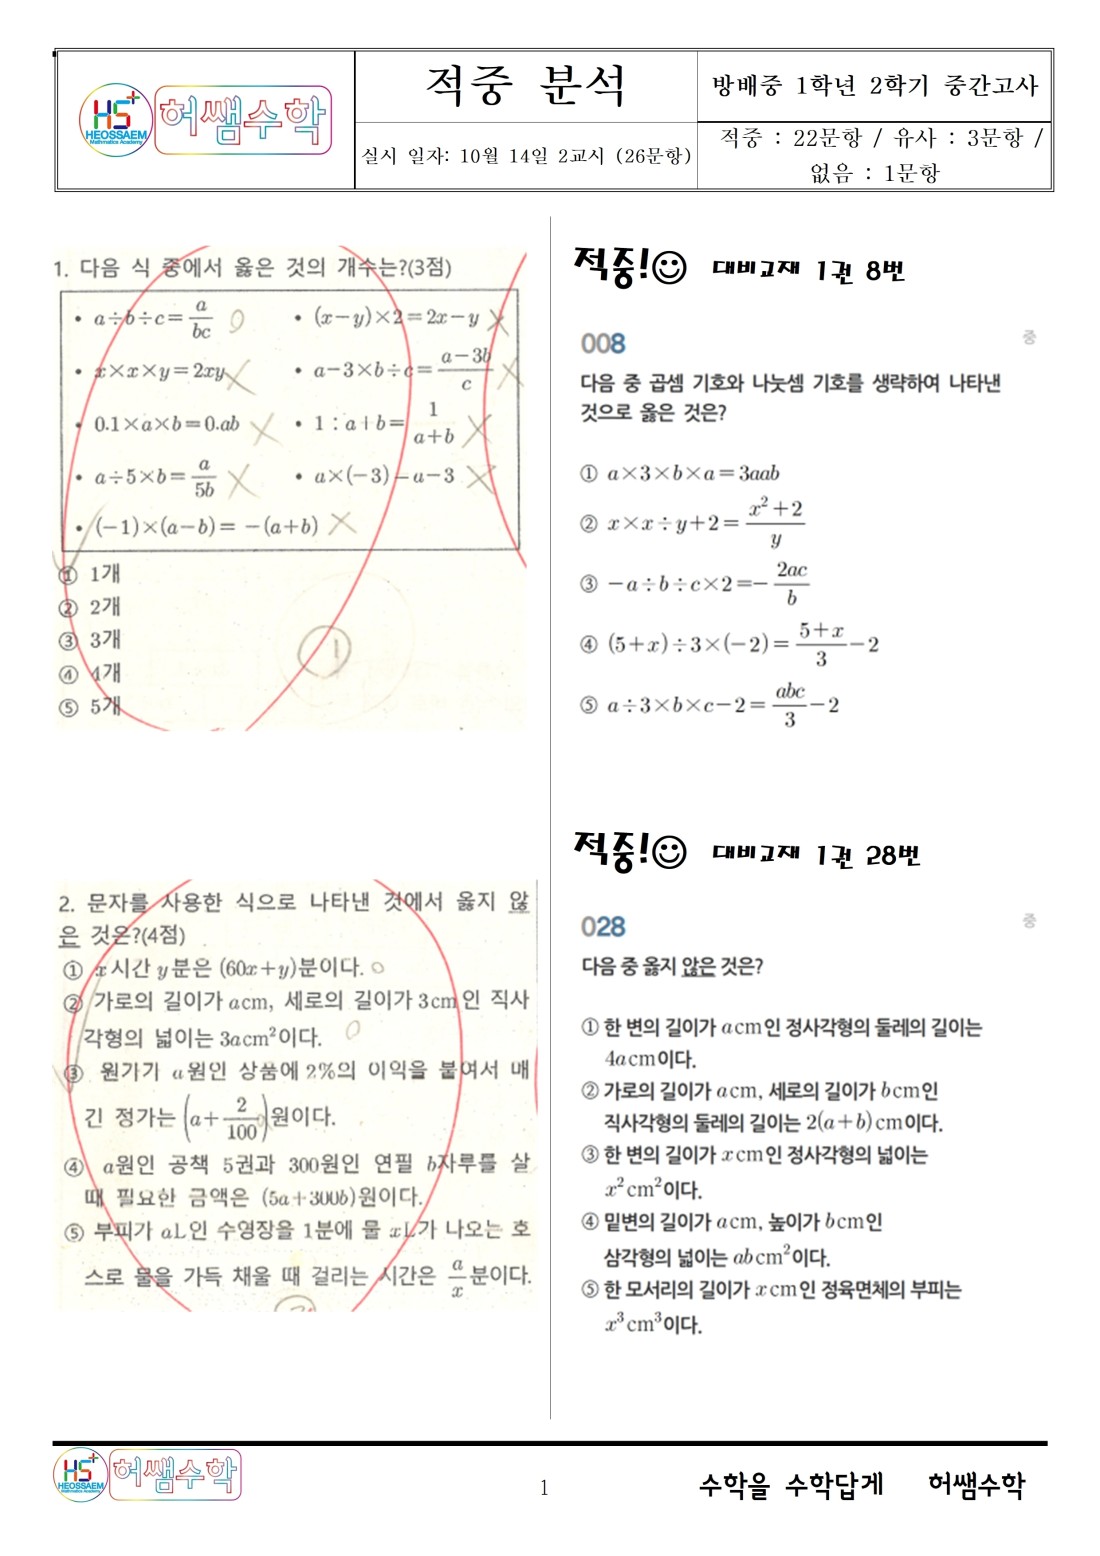 HS+
HEOSSAEM
Mathematics Academy
허쌤수학
적중 분석
방배중 1학년 2학기 중간고사
실시 일자: 10월 14일 2교시 (26문항)
적중 : 22문항 / 유사 : 3문항 /
없음 : 1문항
1. 다음 식 중에서 옳은 것의 개수는?(3점)
• a÷b÷c=a/bc
• (x-y)×2=2x-y
• x×x×y=2xy
• a-3×b÷c=(a-3b)/c
• 0.1×a×b=0.ab
• 1:a+b=1/(a+b)
• a÷5×b=a/5b
• a×(-3)=a-3
• (-1)×(a-b)= -(a+b)
① 1개
② 2개
③ 3개
④ 4개
⑤ 5개
①
적중!☺ 대비교재 1권 8번
008
중
다음 중 곱셈 기호와 나눗셈 기호를 생략하여 나타낸
것으로 옳은 것은?
① a×3×b×a=3aab
② x×x÷y+2=(x²+2)/y
③ -a÷b÷c×2=-2ac/b
④ (5+x)÷3×(-2)=(5+x)/3-2
⑤ a÷3×b×c-2=abc/3-2
2. 문자를 사용한 식으로 나타낸 것에서 옳지 않
은 것은?(4점)
① x시간 y분은 (60x+y)분이다.
② 가로의 길이가 acm, 세로의 길이가 3cm인 직사
각형의 넓이는 3acm²이다.
③ 원가가 a원인 상품에 2%의 이익을 붙여서 매
긴 정가는 (a+2/100)원이다.
④ a원인 공책 5권과 300원인 연필 b자루를 살
때 필요한 금액은 (5a+300b)원이다.
⑤ 부피가 aL인 수영장을 1분에 물 xL가 나오는 호
스로 물을 가득 채울 때 걸리는 시간은 a/x분이다.
적중!☺ 대비교재 1권 28번
028
중
다음 중 옳지 않은 것은?
① 한 변의 길이가 acm인 정사각형의 둘레의 길이는
4acm이다.
② 가로의 길이가 acm, 세로의 길이가 bcm인
직사각형의 둘레의 길이는 2(a+b)cm이다.
③ 한 변의 길이가 xcm인 정사각형의 넓이는
x²cm²이다.
④ 밑변의 길이가 acm, 높이가 bcm인
삼각형의 넓이는 abcm²이다.
⑤ 한 모서리의 길이가 xcm인 정육면체의 부피는
x³cm³이다.
HS+
HEOSSAEM
Mathematics Academy
허쌤수학
1
수학을 수학답게 허쌤수학